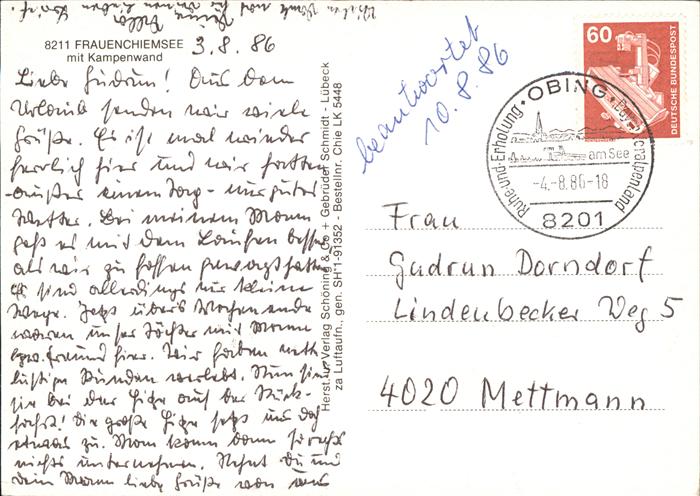 8211 FRAUENCHIEMSEE
mit Kampenwand
3.8.86
Liebe Gudrun! Aus dem
Urlaub senden wir viele
Grüße. Es ist mal wieder
herrlich hier und wir hatten
außer einem Tag - nur gutes
Wetter. Bei meinem Mann
geht es mit dem Laufen besser
als wir zu hoffen gewagt hatten
es sind allerdings nur kleine
Wege. Jetzt übers Wochenende
waren unsere Töchter mit Mann
bzw. Freund hier. Wir haben
lustige Stunden verlebt. Nun sind
sie bei der Hitze auf der Rück-
fahrt! Die große Hitze setzt uns doch
etwas zu. Man kann dann so recht
nichts unternehmen. Nehmt Du und
Dein Mann liebe Grüße von uns
Herst. u. Verlag Schöning & Co + Gebrüder Schmidt - Lübeck
za Luftaufn., gen. SH 1-91352 - Bestellnr. Chie LK 5448
beantwortet
10.8.86
60
DEUTSCHE BUNDESPOST
OBING
Ruhe und Erholung
am See
-4.-8.86-18
8201
Frau
Gudrun Dorndorf
Lindenbecker Weg 5
4020 Mettmann